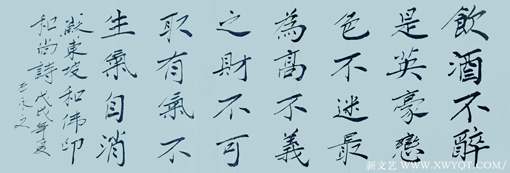 飲酒不醉
是英豪戀
色不迷最
為高不義
之財不可
取有氣不
生氣自消
東坡和佛印
和尚詩戊戌年夏
新文艺 WWW.XWYQT.COM